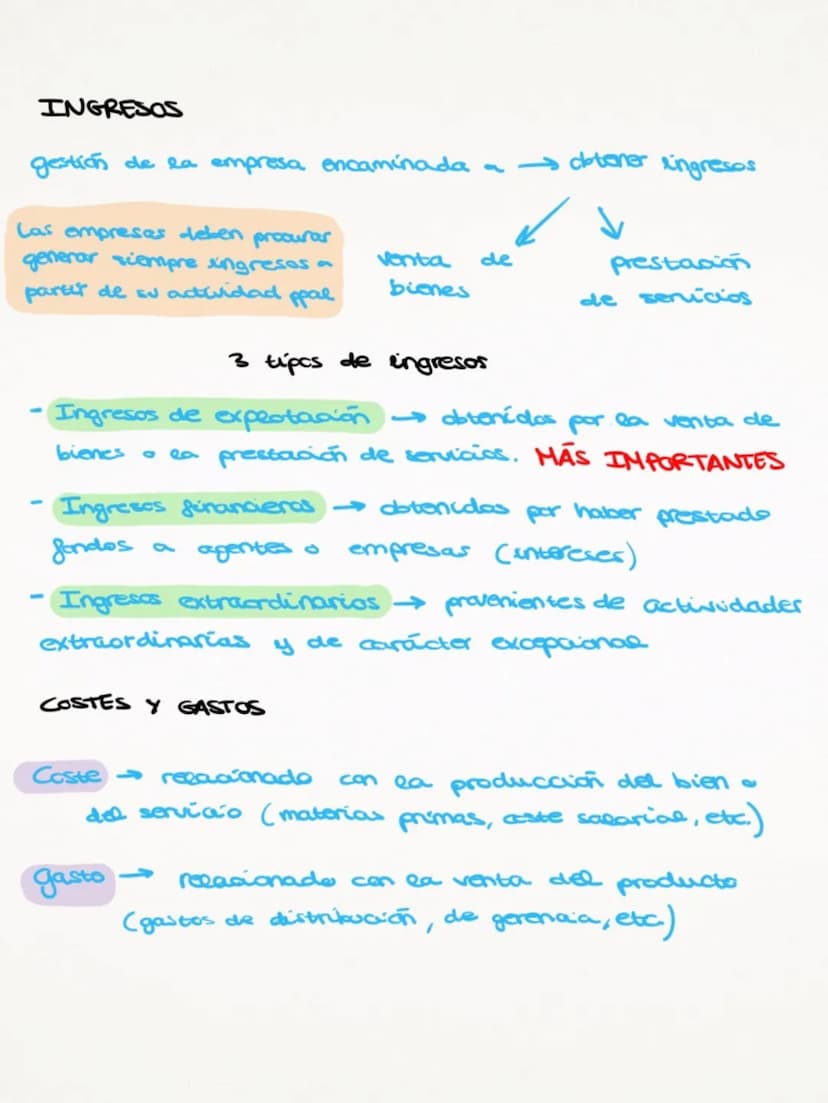 INGRESOS
gestión de la empresa encaminada a → obtener ingresos
Las empresas deben procurar
generar siempre ingresos a
partir de su actividad ppal
venta de
bienes
prestación
de servicios
3 tipos de ingresos
- Ingresos de explotación → obtenidos por la venta de
bienes o la prestación de servicios. MÁS IMPORTANTES
- Ingresos financieros → obtenidos por haber prestado
fondos a agentes o empresas (intereses)
- Ingresos extraordinarios → provenientes de actividades
extraordinarias y de carácter excepcional
COSTES Y GASTOS
Coste → relacionado con la producción del bien o
del servicio (materias primas, coste salarial, etc.)
gasto → relacionado con la venta del producto
(gastos de distribución, de gerencia, etc.)